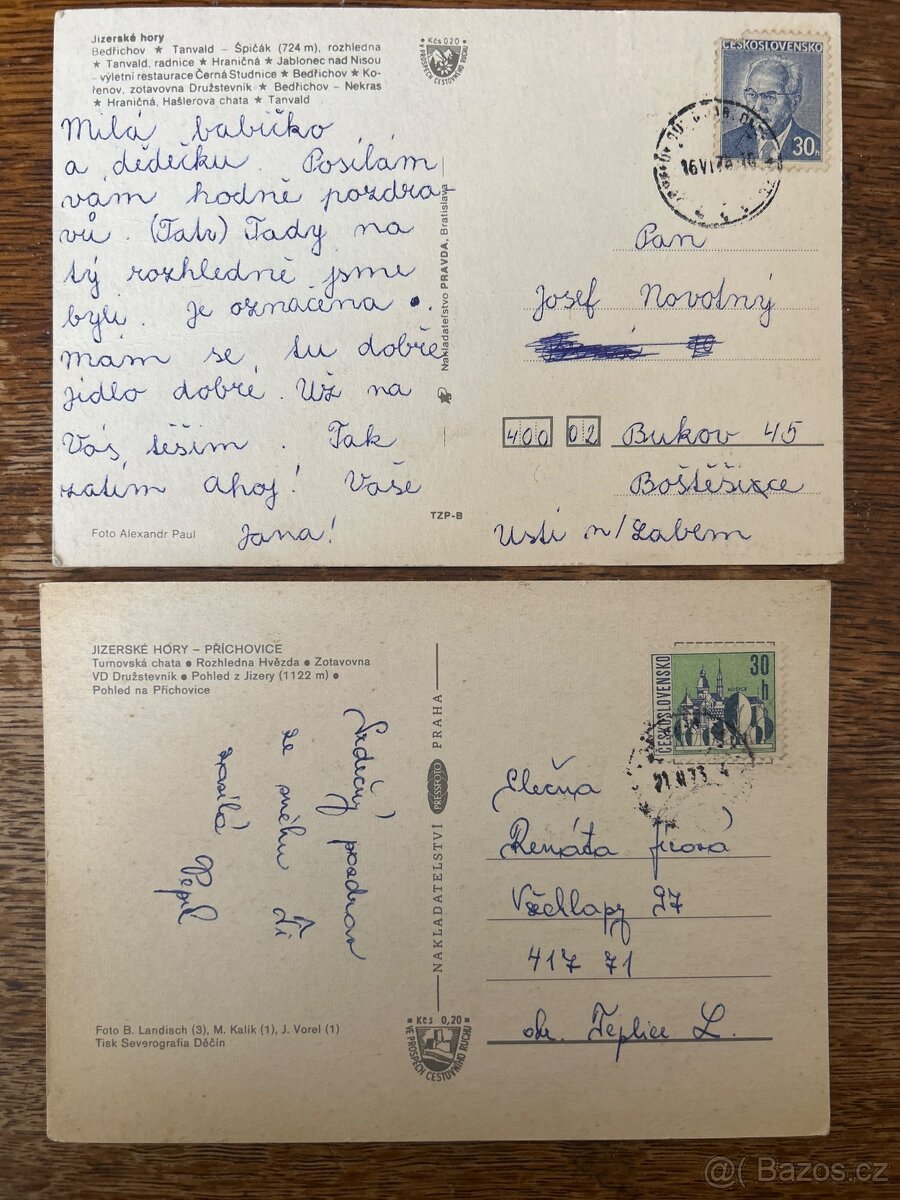 Jizerské hory
Bedřichov ★ Tanvald – Špičák (724 m), rozhledna
★ Tanvald, radnice ★ Hraničná ★ Jablonec nad Nisou
– výletní restaurace Černá Studnice ★ Bedřichov ★ Ko-
řenov, zotavovna Družstevník ★ Bedřichov – Nekras
★ Hraničná, Hašlerova chata ★ Tanvald
Kčs 0,20
V PROSPĚCH CESTOVNÍHO RUCHU
ČESKOSLOVENSKO
30h
16 VI 76
Milá babičko
a dědečku. Posílám
vám hodně pozdra-
vů. (Tatv) Tady na
tý rozhledně jsme
byli. Je označena •.
mám se tu dobře
jidlo dobré. Už na
Vás těším. Tak
zatím ahoj! Vaše
Jana!
Foto Alexandr Paul
Nakladateľstvo PRAVDA, Bratislava
TZP-B
Pan
Josef Novotný
400 02 Bukov 45
Boštěšice
Usti n/Labem
JIZERSKÉ HORY – PŘÍCHOVICE
Turnovská chata ● Rozhledna Hvězda ● Zotavovna
VD Družstevník ● Pohled z Jizery (1122 m) ●
Pohled na Příchovice
Srdečný pozdrav
ze sněhu Ti
zasílá Pepíl
Foto B. Landisch (3), M. Kalik (1), J. Vorel (1)
Tisk Severografia Děčín
NAKLADATELSTVÍ PRESSFOTO PRAHA
Kčs 0,20
VE PROSPĚCH CESTOVNÍHO RUCHU
ČESKOSLOVENSKO
30
h
KOŠICE
Slečna
Renáta Jírová
Všechlapy 97
417 71
okr. Teplice L.
@ Bazos.cz